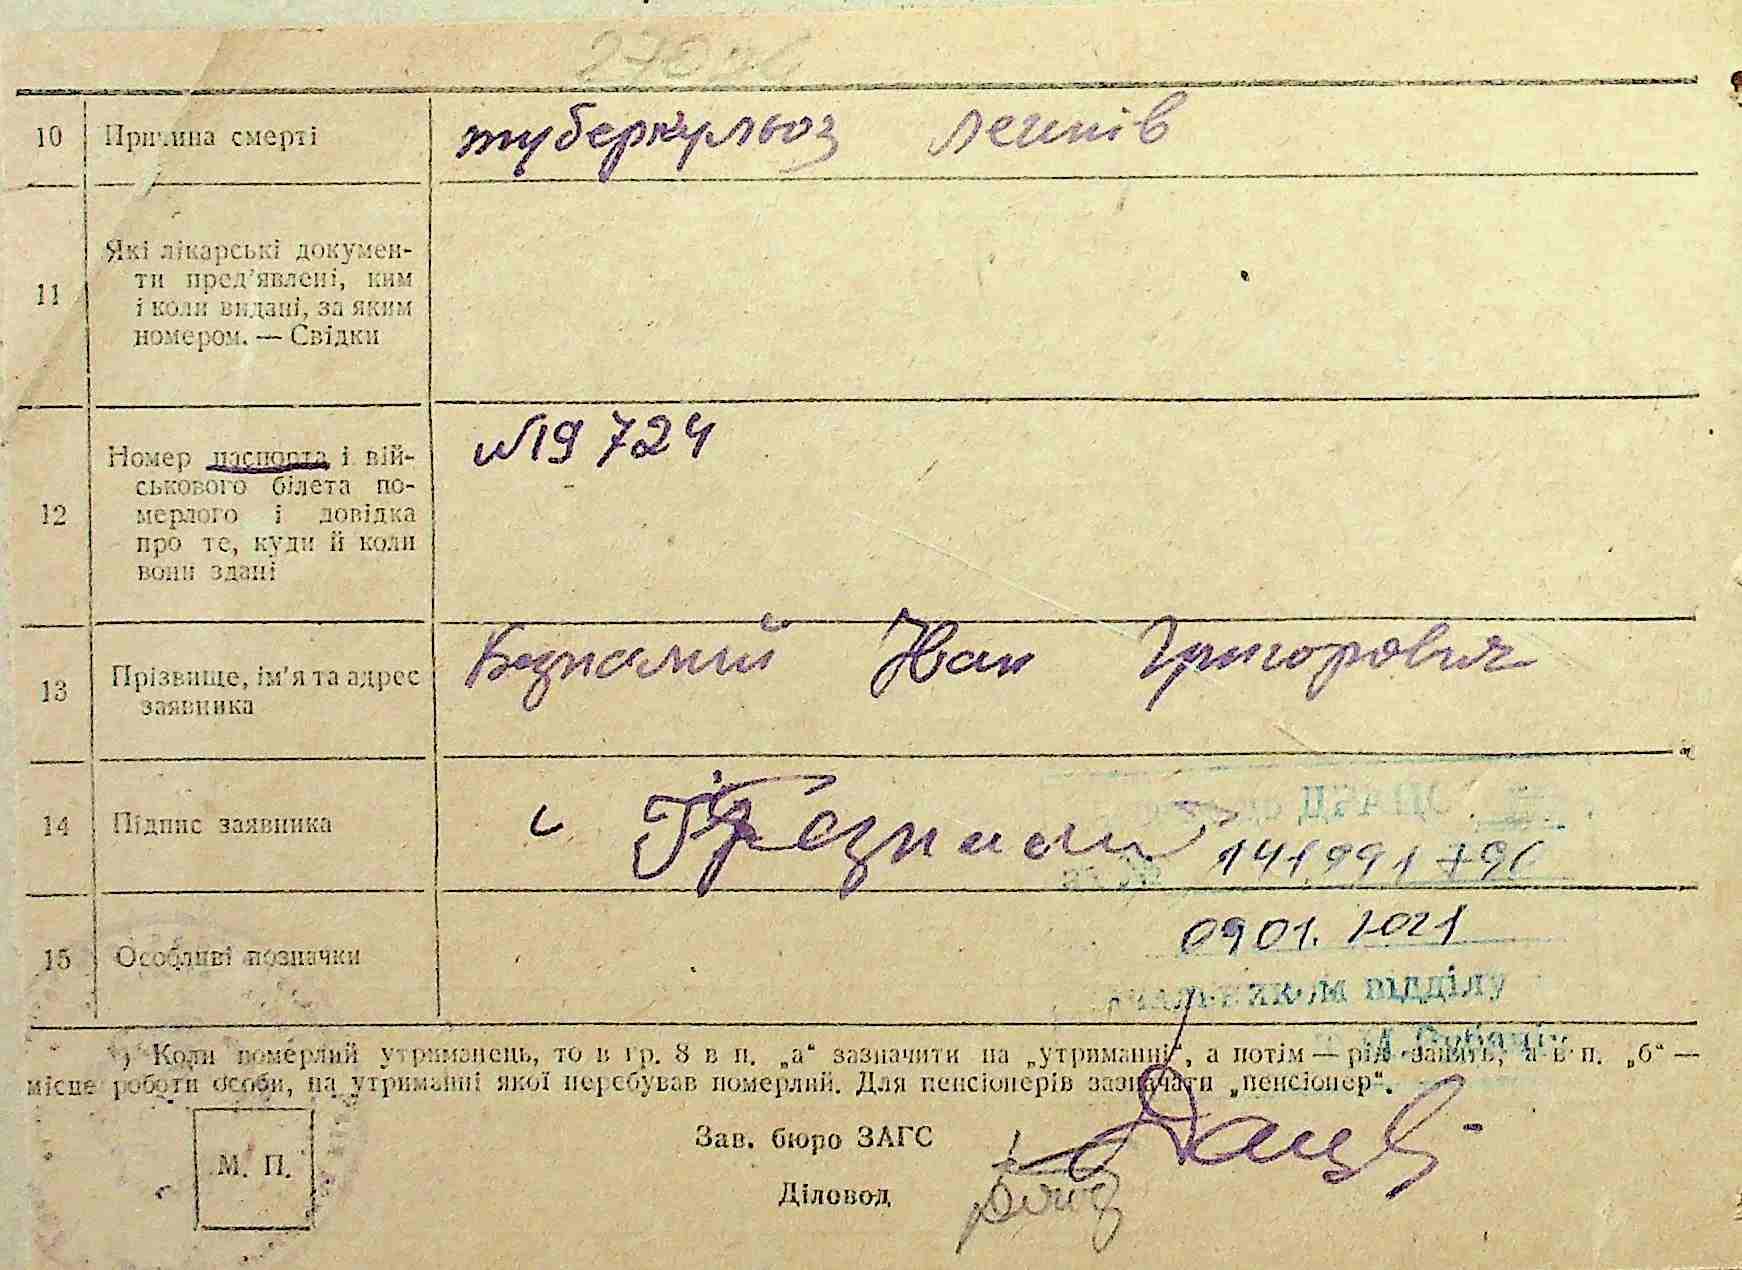 27024
10 Причина смерті туберкульоз легенів
11 Які лікарські докумен-
ти пред'явлені, ким
і коли видані, за яким
номером. — Свідки
12 Номер паспорта і вій- №19724
ськового білета по-
мерлого і довідка
про те, куди й коли
вони здані
13 Прізвище, ім'я та адрес Іван Григорович
заявника
14 Підпис заявника
09.01.2021
15 Особливі позначки
відділу
¹) Коли померлий утриманець, то в гр. 8 в п. „а“ зазначити на „утриманні“, а потім — рід занять, а в п. „б“ —
місце роботи особи, на утриманні якої перебував померлий. Для пенсіонерів зазначати „пенсіонер“.
Зав. бюро ЗАГС
М. П.
Діловод